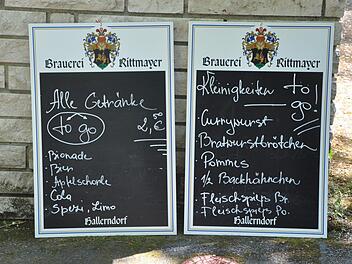 Brauerei Rittmayer
Alle Getränke
to go 2,50
· Bionade
· Bier
· Apfelschorle
· Cola
· Spezi, Limo
Hallerndorf
Brauerei Rittmayer
Kleinigkeiten to go!
· Currywurst
· Bratwurstbrötchen
· Pommes
· 1/2 Backhähnchen
· Fleischspieß Br.
· Fleischspieß Po.
Hallerndorf